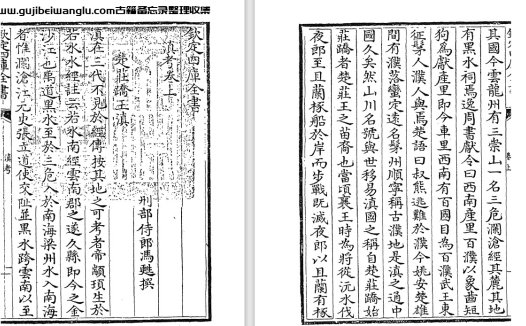 www.gujibeiwanglu.com古籍备忘录整理收集
欽定四庫全書
滇考卷上
刑部侍郎馮甦撰
楚莊蹻王滇
滇在三代不見於經傳按其地之可考者帝顓頊生於
若水水經註云若水南經雲南郡之遂久縣即今之金
沙江也禹道黑水至於三危入於南海梁州水入南海
者惟瀾滄江元史張立道使交阯並黑水跨雲南以至
欽定四庫全書
滇考
其國今雲龍州有三崇山一名三危瀾滄經其麓其地
有黑水祠焉逸周書獻令曰西南產里百濮以象齒短
狗為獻產里即今車里西南有百國目為百濮武王東
征髳人濮人與焉楚語曰叔熊逃難於濮今姚安楚雄
間有濮落蠻定遠名髳州順寧稱古濮地是滇之通中
國久矣然山川名號與世移易滇國之稱自楚莊蹻始
莊蹻者楚莊王之苗裔也當頃襄王時為將從沅水伐
夜郎至且蘭椓船於岸而步戰既滅夜郎以且蘭有椓